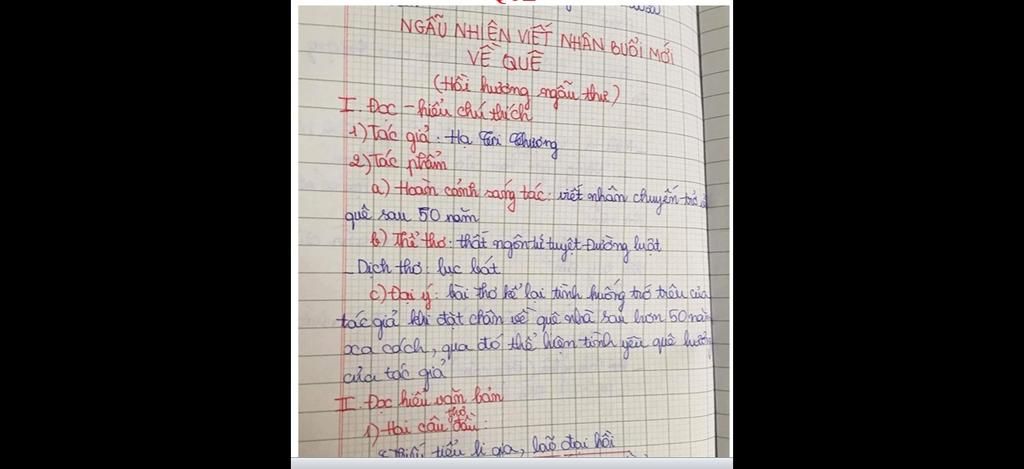 NGẪU NHIÊN VIẾT NHÂN BUỔI MỚI
VỀ QUÊ
(Hồi hương ngẫu thư)
I. Đọc - hiểu chú thích
1) Tác giả: Hạ Tri Chương
2) Tác phẩm
a) Hoàn cảnh sáng tác: viết nhân chuyến trở
quê sau 50 năm
b) Thể thơ: thất ngôn tứ tuyệt Đường luật
_ Dịch thơ: lục bát
c) Đại ý: bài thơ kể lại tình huống trớ trêu của
tác giả khi đặt chân về quê nhà sau hơn 50 năm
xa cách, qua đó thể hiện tình yêu quê hương
của tác giả
II. Đọc hiểu văn bản
1) Hai câu thơ đầu:
tiểu li gia, lão đại hồi